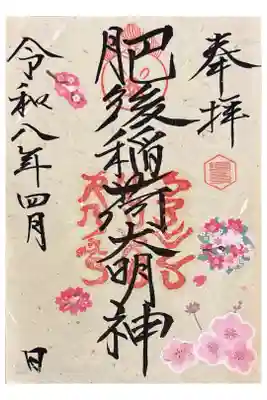 奉拝
肥後稲荷大明神
令和八年四月 日